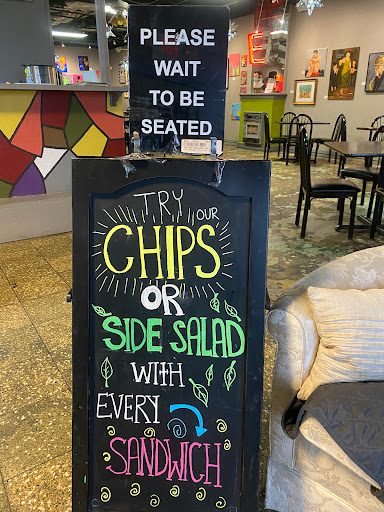 PLEASE
WAIT
TO BE
SEATED
TRY OUR
CHIPS
OR
SIDE SALAD
WITH
EVERY
SANDWICH